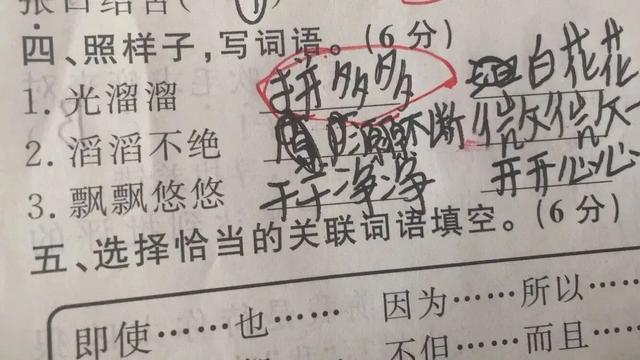 张口结舌（
四、照样子,写词语。(6分)
1.光溜溜 拼多多 白花花
2.滔滔不绝 不断
3.飘飘悠悠 干干净净 开开心心
五、选择恰当的关联词语填空。(6分)
即使……也…… 因为……所以……
不但……而且……